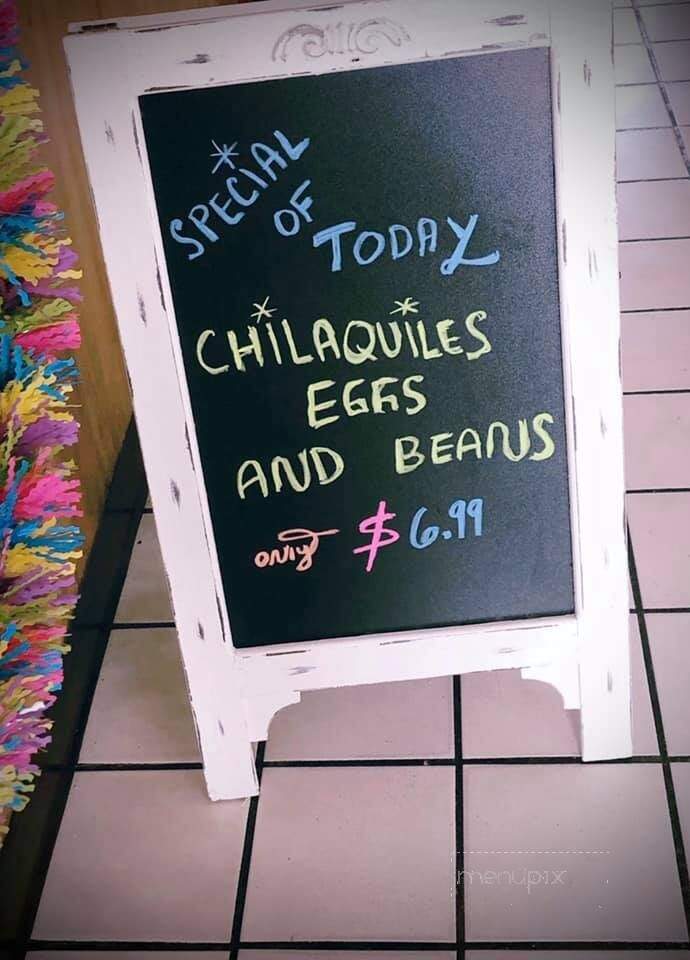 SPECIAL
OF
TODAY
CHILAQUILES
EGGS
AND BEANS
only $6.99
menupix